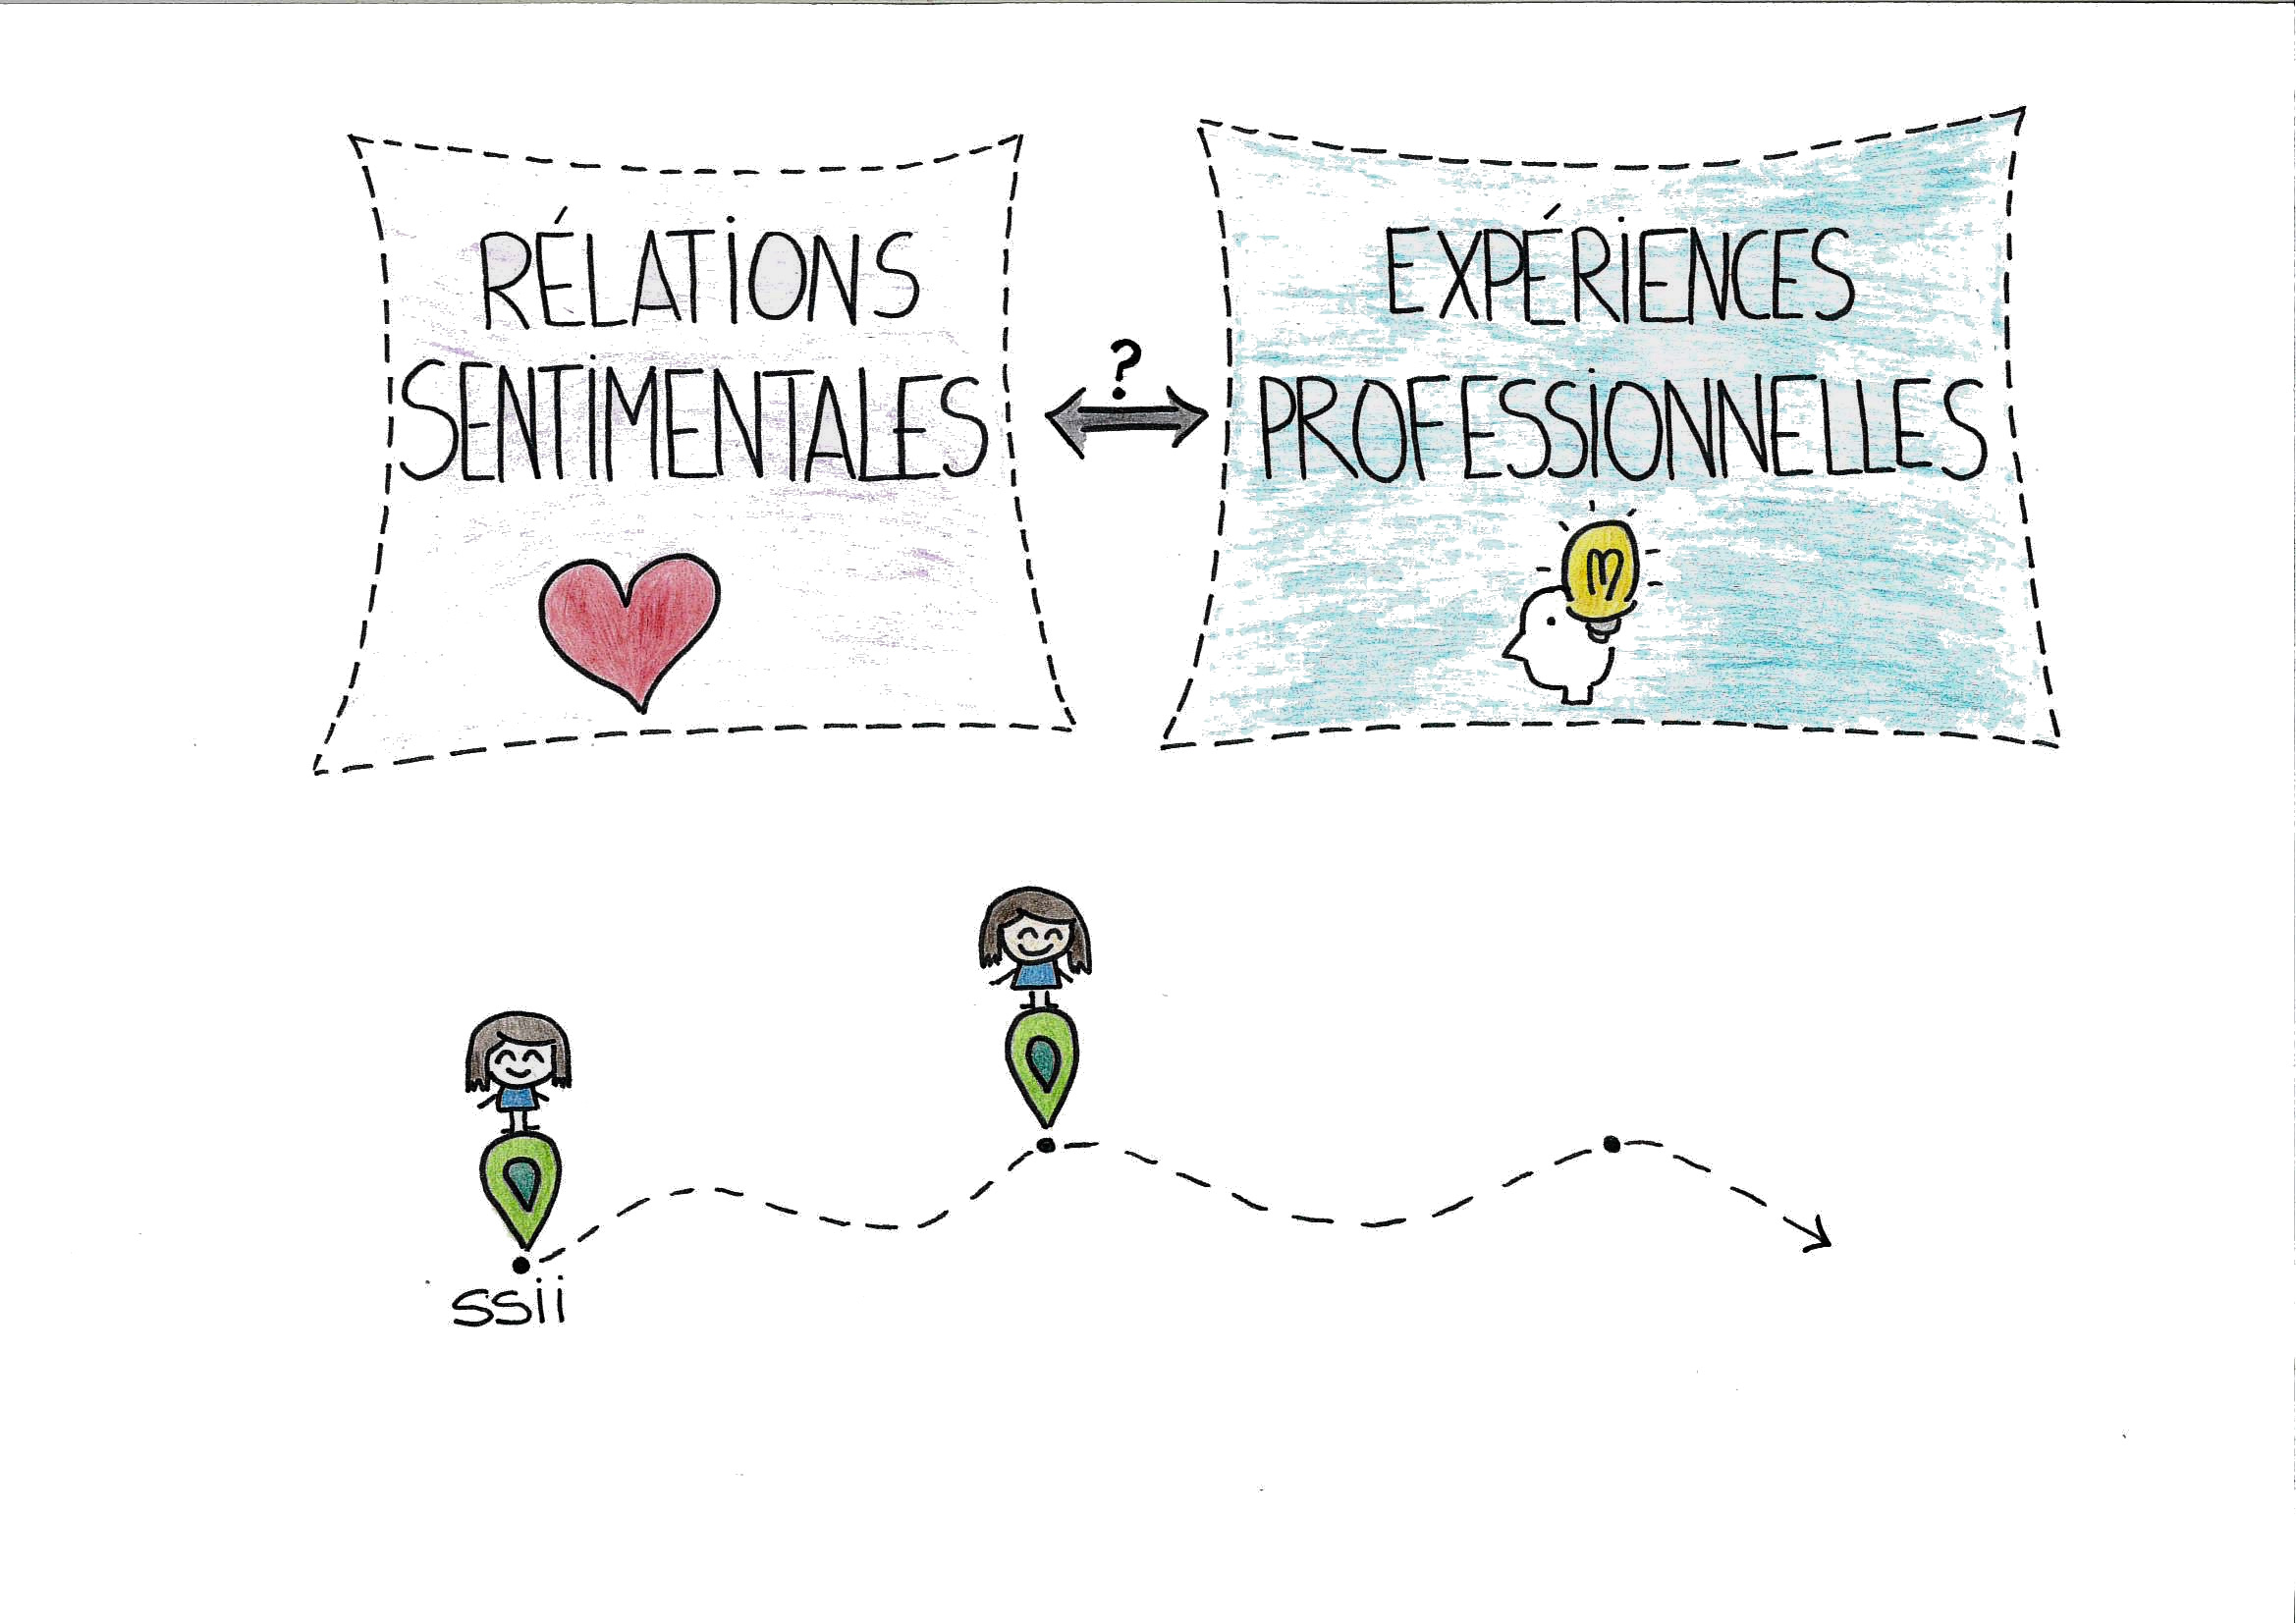 RÉLATIONS
SENTIMENTALES
?
EXPÉRIENCES
PROFESSIONNELLES
ssii